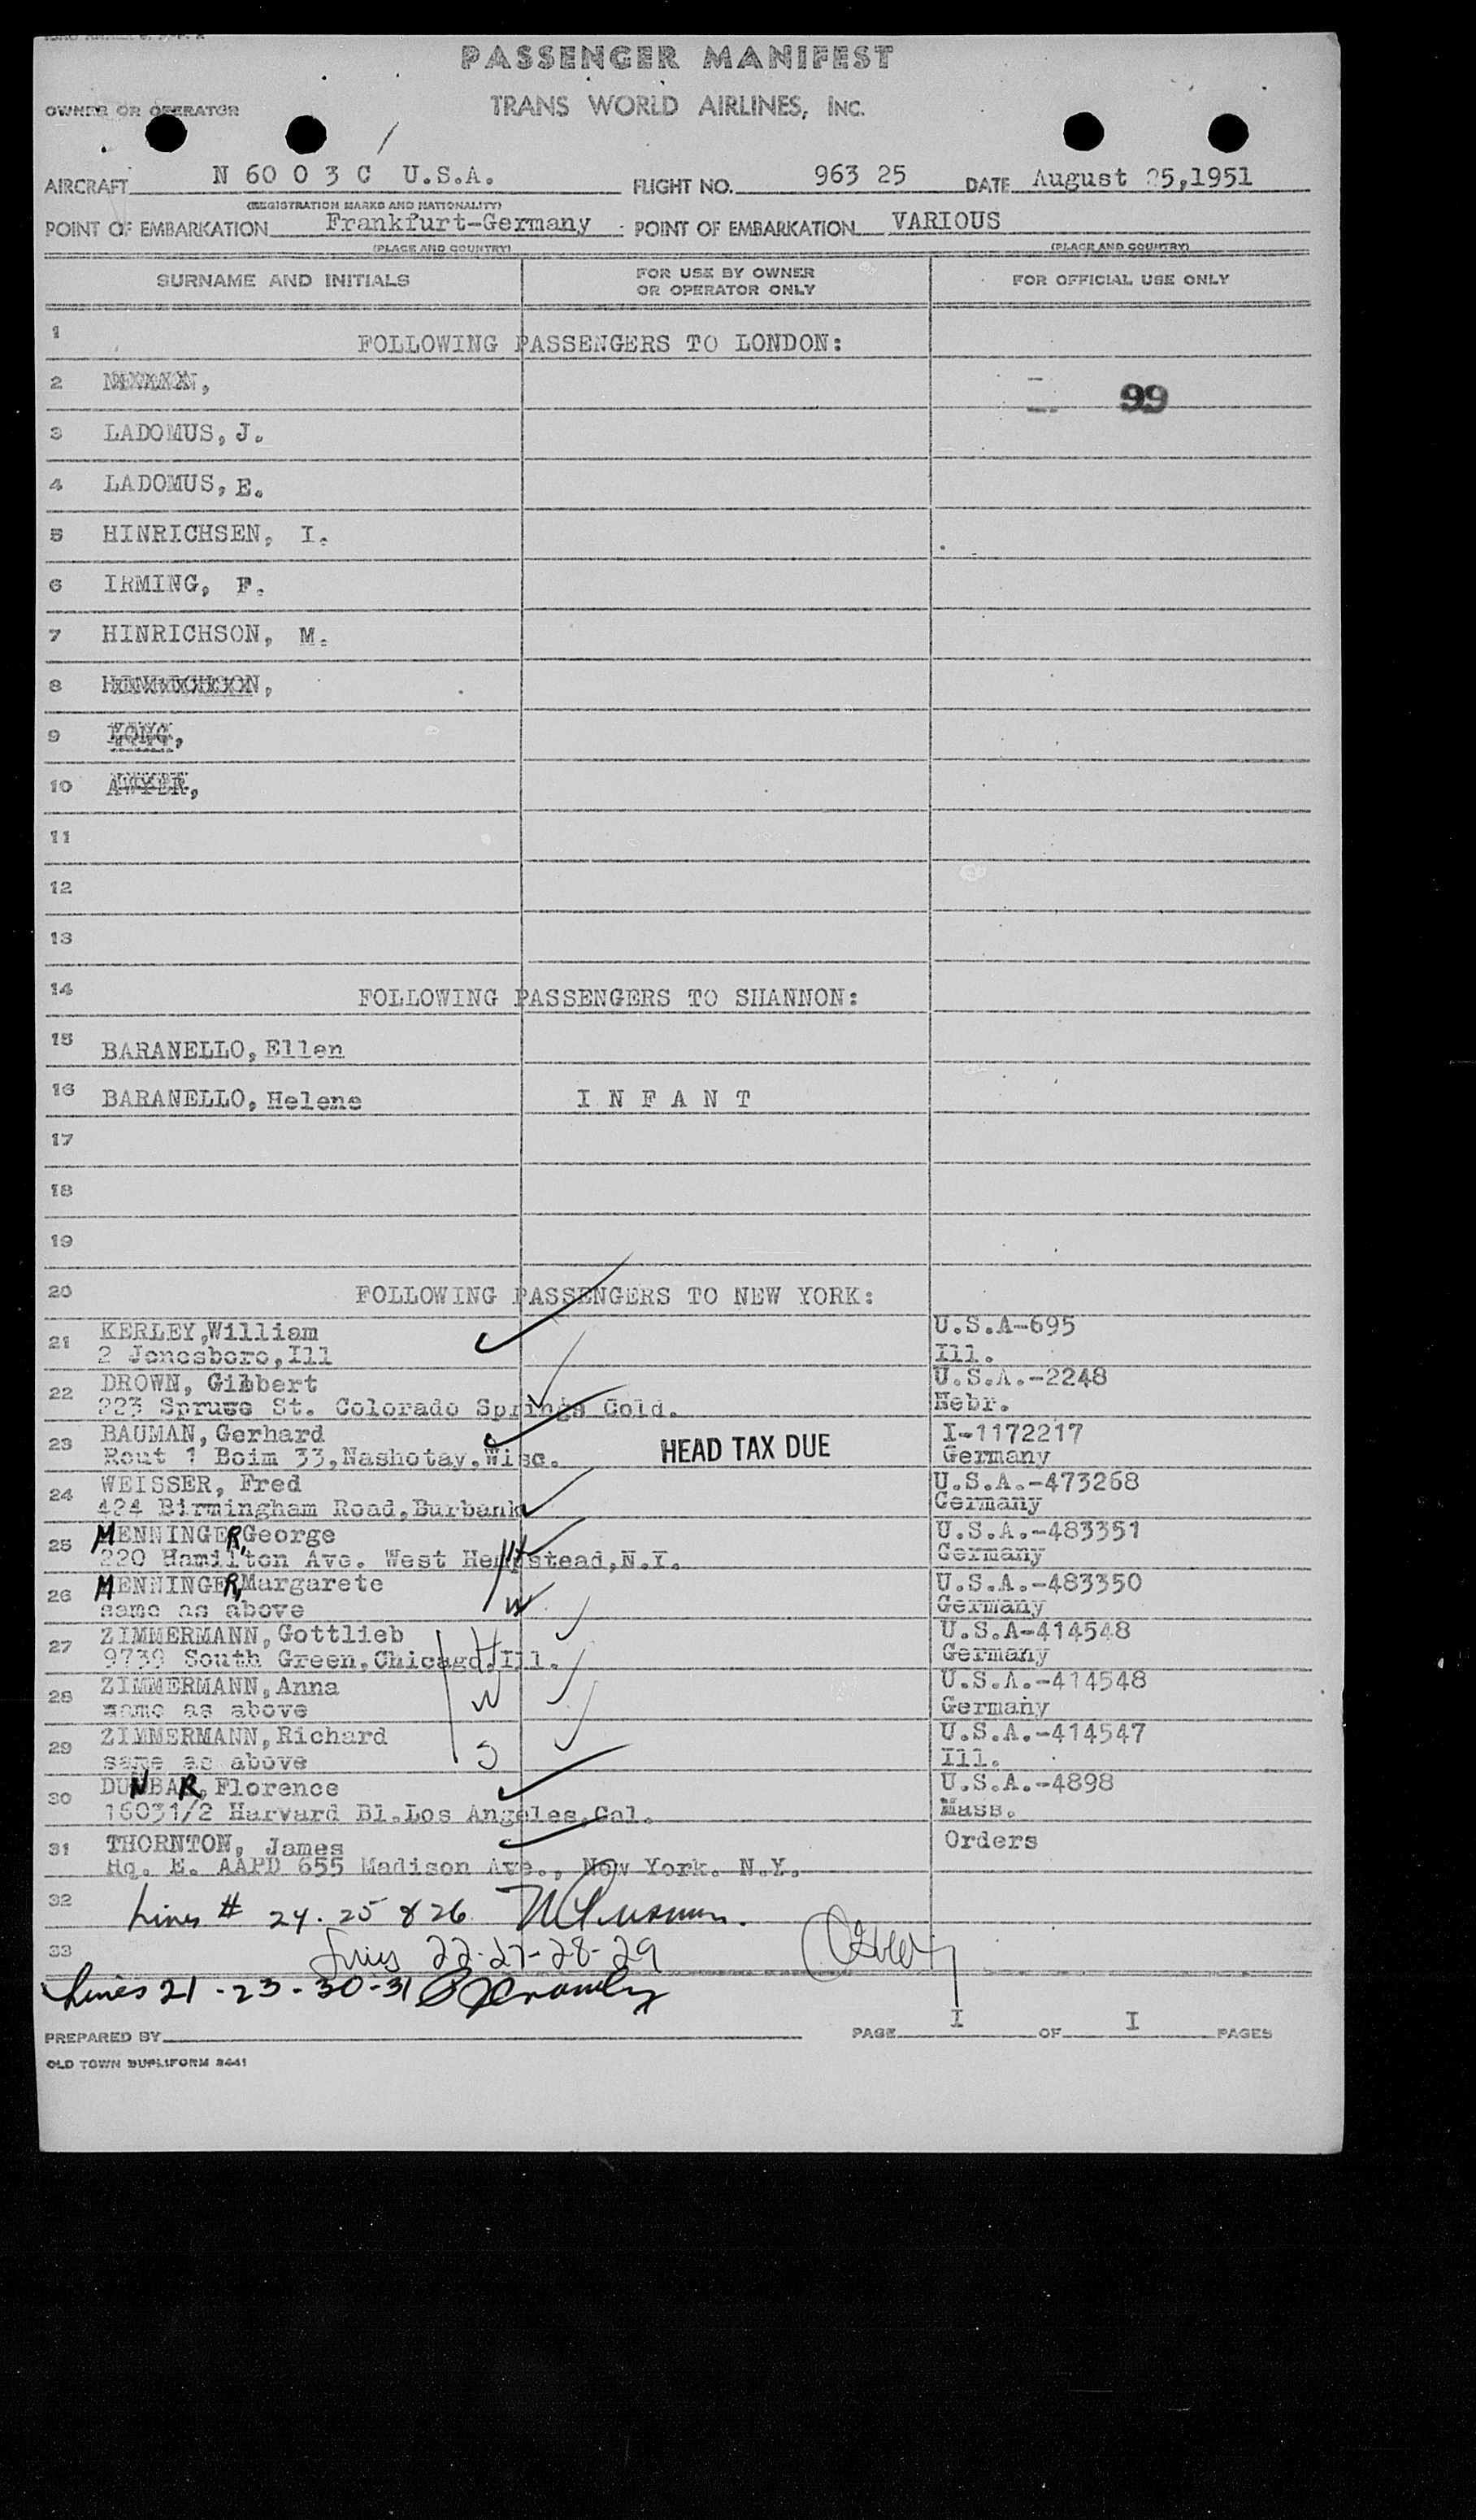 PASSENGER MANIFEST
OWNER OR OPERATOR TRANS WORLD AIRLINES, INC.
AIRCRAFT N 60 0 3 C U.S.A. FLIGHT NO. 963 25 DATE August 25,1951
(REGISTRATION MARKS AND NATIONALITY)
POINT OF EMBARKATION Frankfurt-Germany POINT OF EMBARKATION VARIOUS
(PLACE AND COUNTRY) (PLACE AND COUNTRY)
SURNAME AND INITIALS FOR USE BY OWNER OR OPERATOR ONLY FOR OFFICIAL USE ONLY
1 FOLLOWING PASSENGERS TO LONDON:
2
99
3 LADOMUS, J.
4 LADOMUS, E.
5 HINRICHSEN, I.
6 IRMING, F.
7 HINRICHSON, M.
8
9
10
11
12
13
14 FOLLOWING PASSENGERS TO SHANNON:
15 BARANELLO, Ellen
16 BARANELLO, Helene I N F A N T
17
18
19
20 FOLLOWING PASSENGERS TO NEW YORK:
21 KERLEY,William U.S.A-695
2 Jonesboro,Ill Ill.
22 DROWN, Gilbert U.S.A.-2248
223 Spruse St. Colorado Springs Cold. Nebr.
23 BAUMAN, Gerhard HEAD TAX DUE I-1172217
Rout 1 Boim 33,Nashotay,Wisc. Germany
24 WEISSER, Fred U.S.A.-473268
424 Birmingham Road,Burbank Germany
25 MENNINGER,George U.S.A.-483351
220 Hamilton Ave. West Hempstead,N.Y. H Germany
26 MENNINGER,Margarete U.S.A.-483350
same as above W Germany
27 ZIMMERMANN,Gottlieb H U.S.A-414548
9739 South Green,Chicago,Ill. Germany
28 ZIMMERMANN,Anna W U.S.A.-414548
same as above Germany
29 ZIMMERMANN,Richard U.S.A.-414547
same as above S Ill.
30 DUNBAR,Florence U.S.A.-4898
16031/2 Harvard Bl.Los Angeles,Cal. Mass.
31 THORNTON, James Orders
Hq. E. AAPD 655 Madison Ave., New York. N.Y.
32 Lines # 24. 25 & 26
33 Lines 22-27-28-29
Lines 21-23-30-31
PREPARED BY PAGE I OF I PAGES
OLD TOWN DUPLIFORM 8441